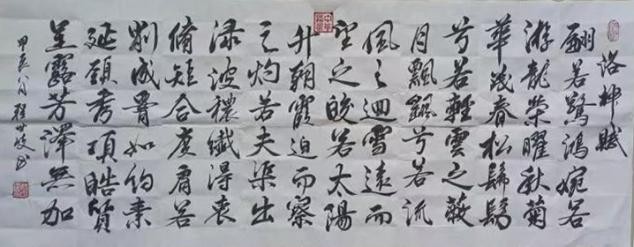 洛神賦
翩若驚鴻婉若
游龍榮曜秋菊
華茂春松髣髴
兮若輕雲之蔽
月飄飖兮若流
風之迴雪遠而
望之皎若太陽
升朝霞迫而察
之灼若夫渠出
渌波穠纖得衷
脩短合度肩若
削成腰如約素
延頸秀項皓質
呈露芳澤無加
甲辰八月